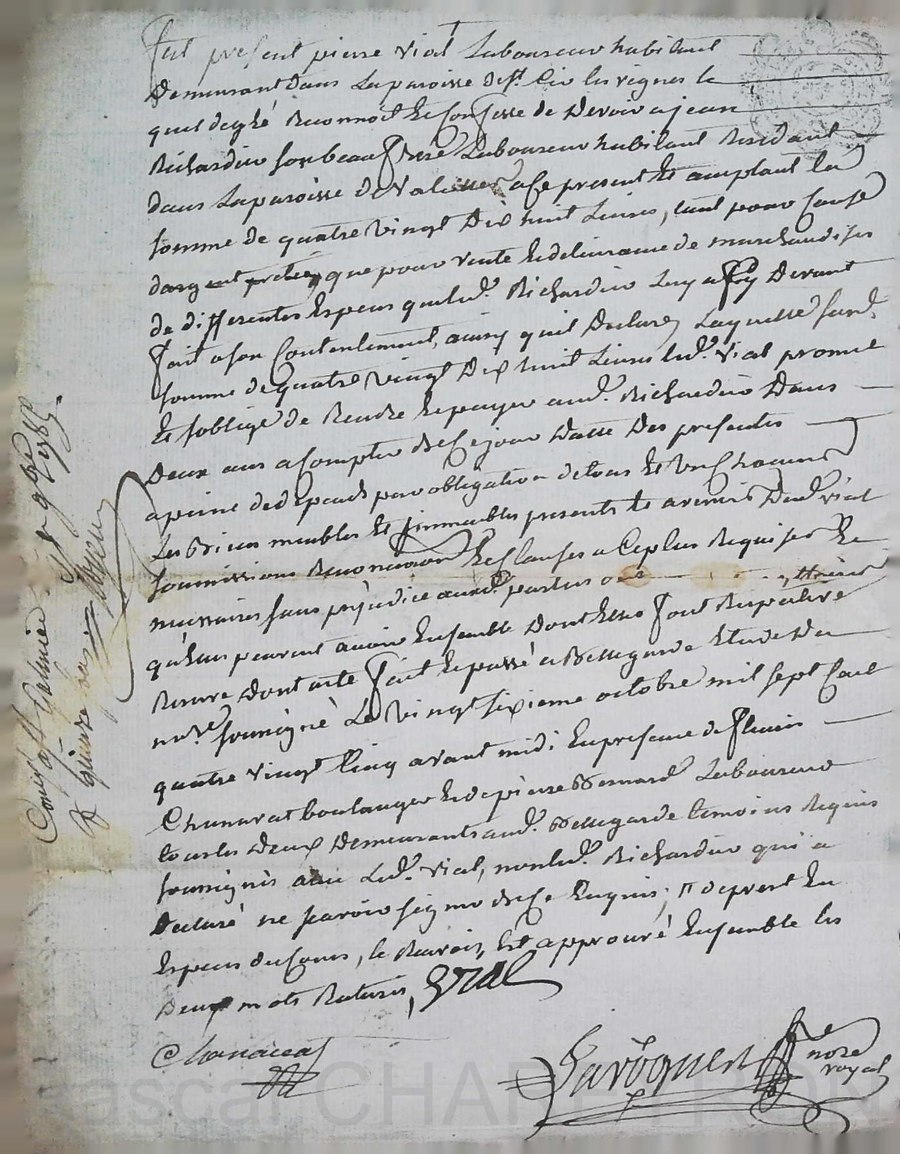 fut present pierre vial Laboureur habitant
Demeurant Dans La paroisse de st. Cir les vignes le
quel de gré Reconnoit Et Confesse de Devoir a jean
Richardin son beau frere Laboureur habitant Residant
dans La paroisse de Val a ce present Et acceptant la
somme de quatre vingt Dix huit Livres, tant pour Cause
dargent que pour vente Et delivrance de marchandises
de differentes Especes que led. Richardin Luy a Cy Devant
fait a son Contentement, ainsy quil Declare, Laquelle sus d.
somme de quatre vingt Dix huit Livres led. Vial promet
Et soblige de Rendre Et payer aud. Richardin Dans
Deux ans a Compter de Ce jour Datte Des presentes
a peine de depends par obligation de tous Et Un Chacuns
Les Biens meubles Et jmmeubles presents Et avenir Dud. vial
soumissions Renonciations Et Clauses a Ce plus Requises Et
necessaires sans prejudice auxd. parties
quElles peuvent avoir Ensemble Dont Elles font Respective
Reserve Dont acte fait Et passé a Bellegarde Etude Du
nre. sousigné Le vingt sixieme octobre mil sept Cent
quatre vingt Cinq avant midi En presence de fleuris
Chanavat boulanger Et de pierre Bernard Laboureur
tous les Deux Demeurants aud. Bellegarde temoins Requis
soussignés avec Led. Vial, non led. Richardin qui a
Declaré ne savoir signer de Ce Enquis; Il deprent En
Especes du Cours, le Recevois, Est approuvé Ensemble les
Deux mots Raturés, Vial
Chanavat
Laroque nore
royal
Quinze